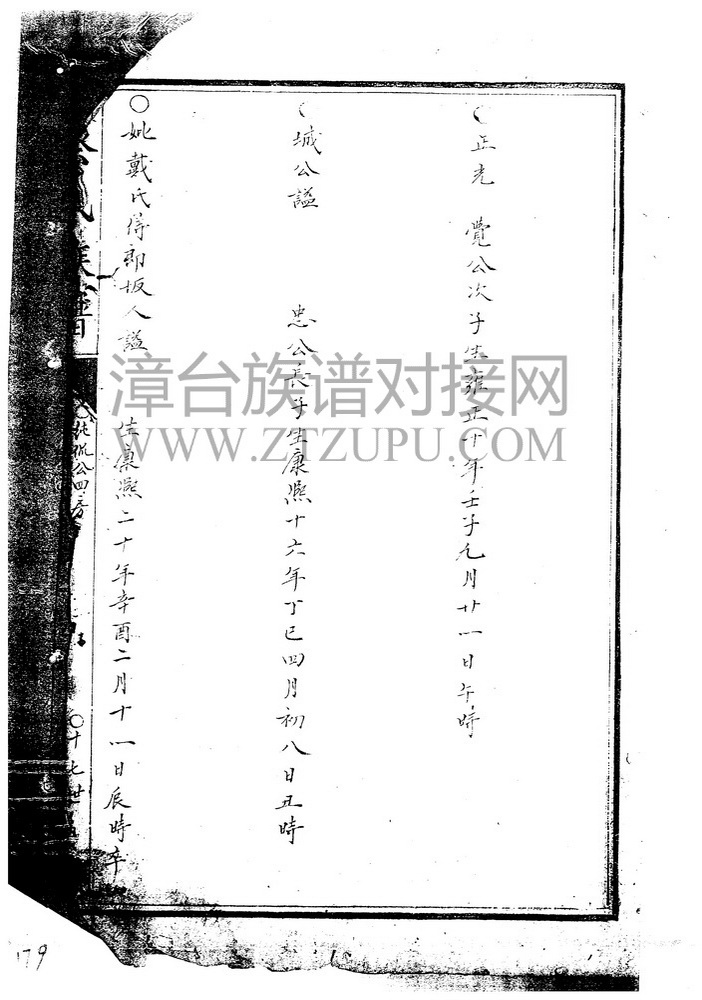 ○正光　覺公次子生雍正十年壬子九月廿一日午時
○城公諡　忠公長子生康熙十六年丁巳四月初八日丑時
○妣戴氏侍郎坂人諡　生康熙二十年辛酉二月十一日辰時卒
公四房
○十七世
179
漳台族谱对接网
WWW.ZTZUPU.COM